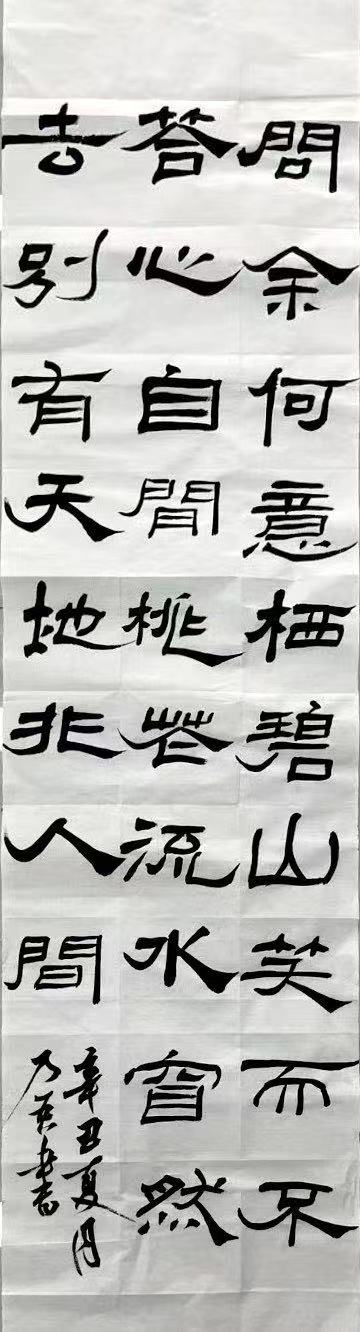 問余何意栖碧山笑而不
答心自閒桃花流水窅然
去別有天地非人間
辛丑夏月
乃君書